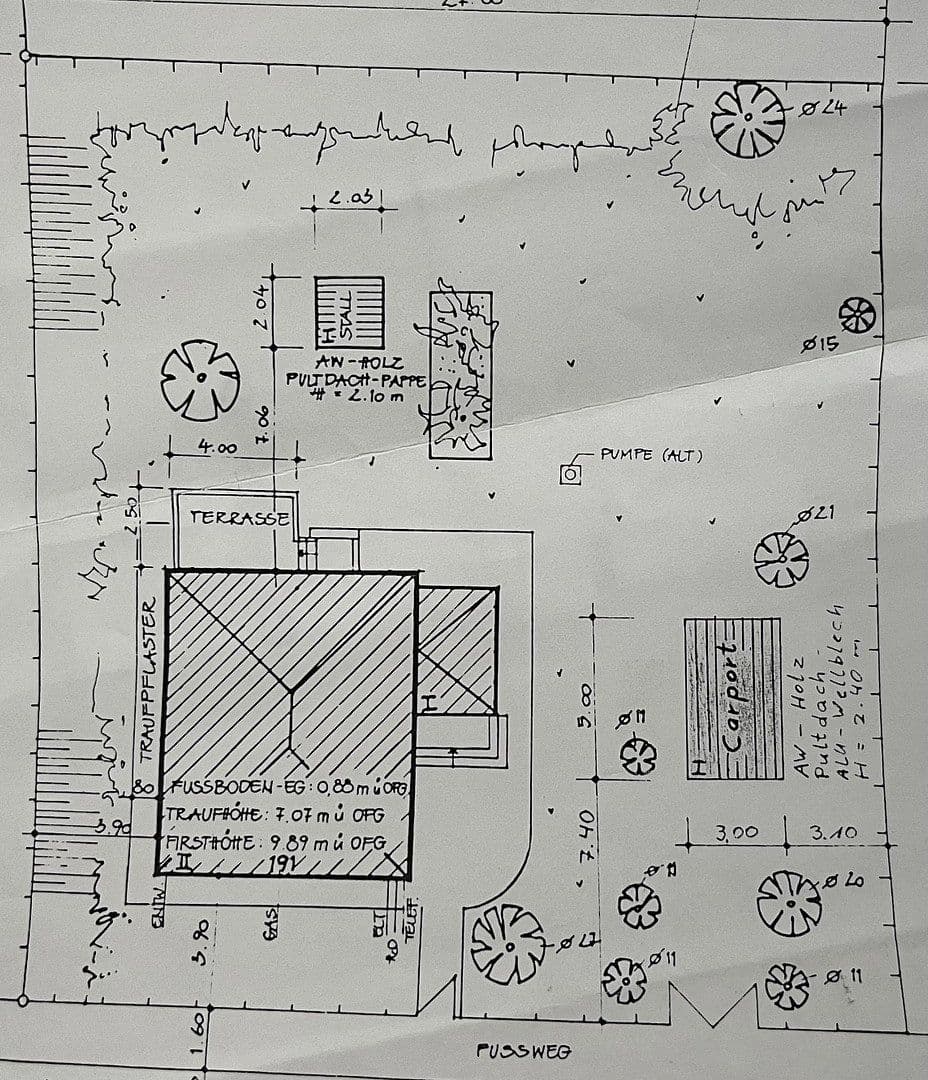 Ø 24
2.03
2.04
H
STALL
Ø15
AW-HOLZ
PULTDACH-PAPPE
H = 2.10 m
7.06
4.00
PUMPE (ALT)
2.50
TERRASSE
Ø21
TRAUFPFLASTER
H
5.00
Carport
H
AW-Holz
Pultdach-
Alu-Wellblech
H = 2.40 m
80
FUSSBODEN-EG: 0,88 m ü OFG
TRAUFHÖHE: 7.07 m ü OFG
FIRSTHÖHE: 9.89 m ü OFG
II
191
3.90
7.40
3,00
3.10
Ø 20
ENTW.
GAS
ELT
TELEF.
3.90
Ø11
Ø 11
1.60
FUSSWEG